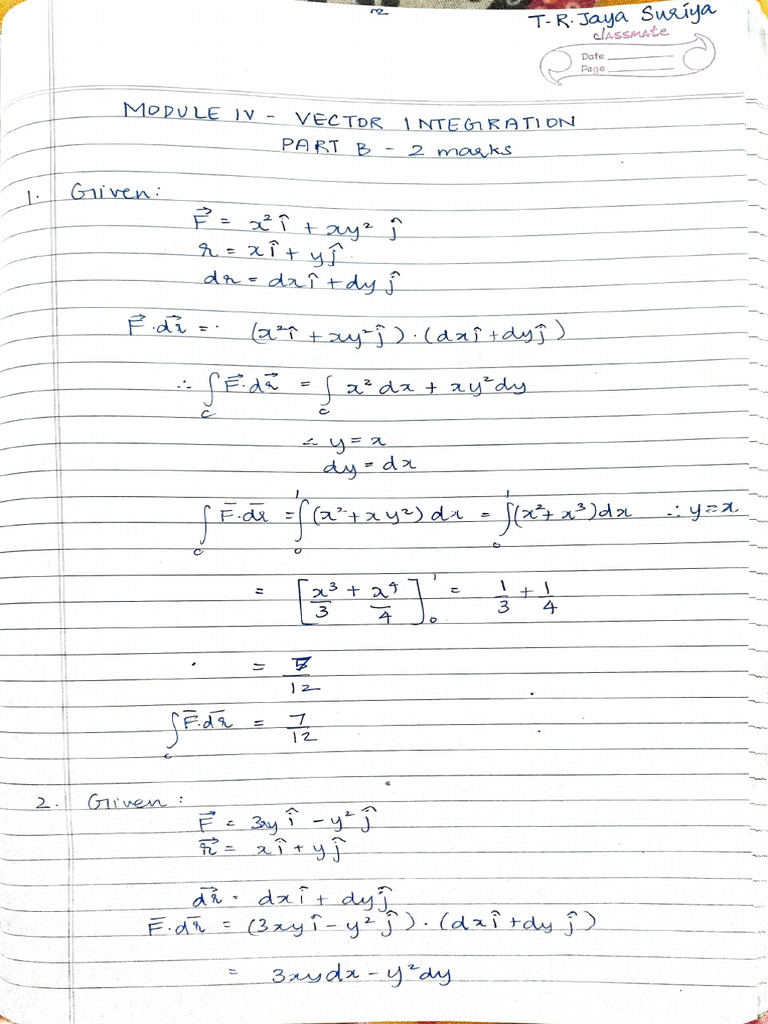 T-R. Jaya Suriya
classmate
Date
Page
MODULE IV - VECTOR INTEGRATION
PART B - 2 marks
1. Given:
F⃗ = x² î + xy² ĵ
r = xî + yĵ
dr = dxî + dy ĵ
F⃗.dr⃗ = (x²î + xy²ĵ).(dxî + dyĵ)
∴ ∫c F⃗.dr⃗ = ∫c x² dx + xy² dy
∴ y = x
dy = dx
∫c F̄.dr̄ = ∫₀¹ (x² + xy²) dx = ∫₀¹ (x² + x³) dx ∴ y = x
= [x³/3 + x⁴/4]₀¹ = 1/3 + 1/4
= 7/12
∫c F̄.dr̄ = 7/12
2. Given:
F⃗ = 3xy î - y² ĵ
r⃗ = xî + yĵ
dr⃗ = dxî + dyĵ
F̄.dr̄ = (3xyî - y² ĵ).(dxî + dy ĵ)
= 3xydx - y²dy